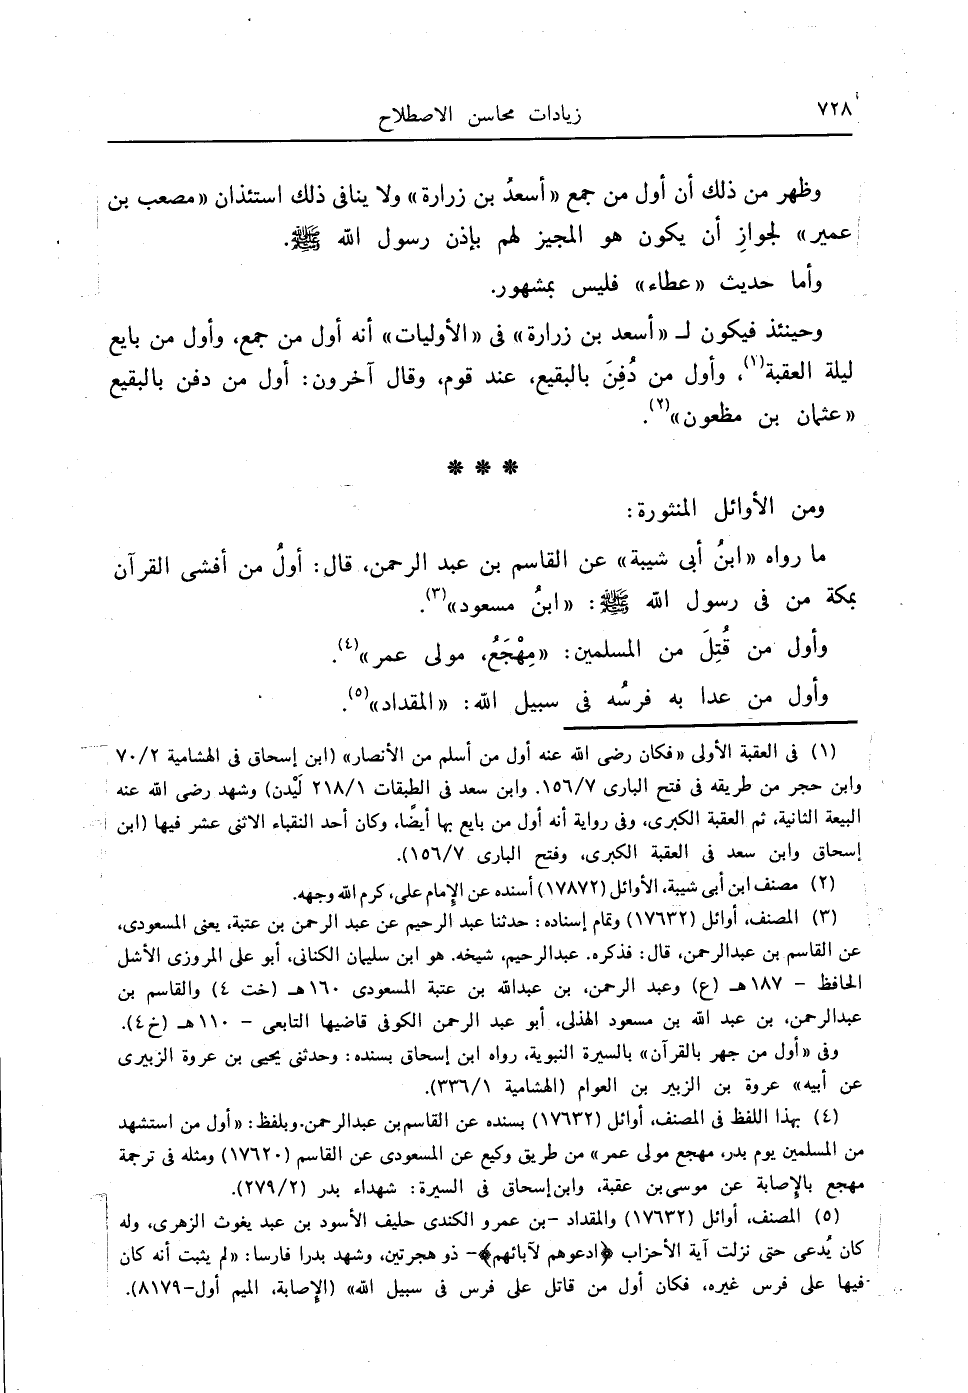 ٧٢٨
زيادات محاسن الاصطلاح
وظهر من ذلك أن أول من جمع «أسعدُ بن زرارة» ولا ينافى ذلك استئذان «مصعب بن
عمير» لجوازِ أن يكون هو المجيز لهم بإذن رسول الله ﷺ.
وأما حديث «عطاء» فليس بمشهور.
وحينئذ فيكون لـ «أسعد بن زرارة» فى «الأوليات» أنه أول من جمع، وأول من بايع
ليلة العقبة(١)، وأول من دُفِنَ بالبقيع، عند قوم، وقال آخرون: أول من دفن بالبقيع
«عثمان بن مظعون»(٢).
* * *
ومن الأوائل المنثورة:
ما رواه «ابنُ أبى شيبة» عن القاسم بن عبد الرحمن، قال: أولُ من أفشى القرآن
بمكة من فى رسول الله ﷺ: «ابنُ مسعود»(٣).
وأول من قُتِلَ من المسلمين: «مِهْجَعُ، مولى عمر»(٤).
وأول من عدا به فرسُه فى سبيل الله: «المقداد»(٥).
(١) فى العقبة الأولى «فكان رضى الله عنه أول من أسلم من الأنصار» (ابن إسحاق فى الهشامية ٧٠/٢
وابن حجر من طريقه فى فتح البارى ١٥٦/٧. وابن سعد فى الطبقات ٢١٨/١ لَيْدن) وشهد رضى الله عنه
البيعة الثانية، ثم العقبة الكبرى، وفى رواية أنه أول من بايع بها أيضًا، وكان أحد النقباء الاثنى عشر فيها (ابن
إسحاق وابن سعد فى العقبة الكبرى، وفتح البارى ١٥٦/٧).
(٢) مصنف ابن أبى شيبة، الأوائل (١٧٨٧٢) أسنده عن الإمام على، كرم الله وجهه.
(٣) المصنف، أوائل (١٧٦٣٢) وتمام إسناده: حدثنا عبد الرحيم عن عبد الرحمن بن عتبة، يعنى المسعودى،
عن القاسم بن عبدالرحمن، قال: فذكره. عبدالرحيم، شيخه. هو ابن سليمان الكنانى، أبو على المروزى الأشل
الحافظ - ١٨٧هـ (ع) وعبد الرحمن، بن عبدالله بن عتبة المسعودى ١٦٠هـ (خت ٤) والقاسم بن
عبدالرحمن، بن عبد الله بن مسعود الهذلى، أبو عبد الرحمن الكوفى قاضيها التابعى - ١١٠هـ (خ٤).
وفى «أول من جهر بالقرآن» بالسيرة النبوية، رواه ابن إسحاق بسنده: وحدثنى يحيى بن عروة الزبيرى
عن أبيه» عروة بن الزبير بن العوام (الهشامية ٣٣٦/١).
(٤) بهذا اللفظ فى المصنف، أوائل (١٧٦٣٢) بسنده عن القاسم بن عبدالرحمن.وبلفظ: «أول من استشهد
من المسلمين يوم بدر، مهجع مولى عمر» من طريق وكيع عن المسعودى عن القاسم (١٧٦٢٠) ومثله فى ترجمة
مهجع بالإصابة عن موسى بن عقبة، وابن إسحاق فى السيرة: شهداء بدر (٢٧٩/٢).
(٥) المصنف، أوائل (١٧٦٣٢) والمقداد -بن عمرو الكندى حليف الأسود بن عبد يغوث الزهرى، وله
كان يُدعى حتى نزلت آية الأحزاب ﴿ادعوهم لآبائهم﴾- ذو هجرتين، وشهد بدرا فارسا: «لم يثبت أنه كان
فيها على فرس غيره، فكان أول من قاتل على فرس فى سبيل الله» (الإصابة، الميم أول-٨١٧٩).